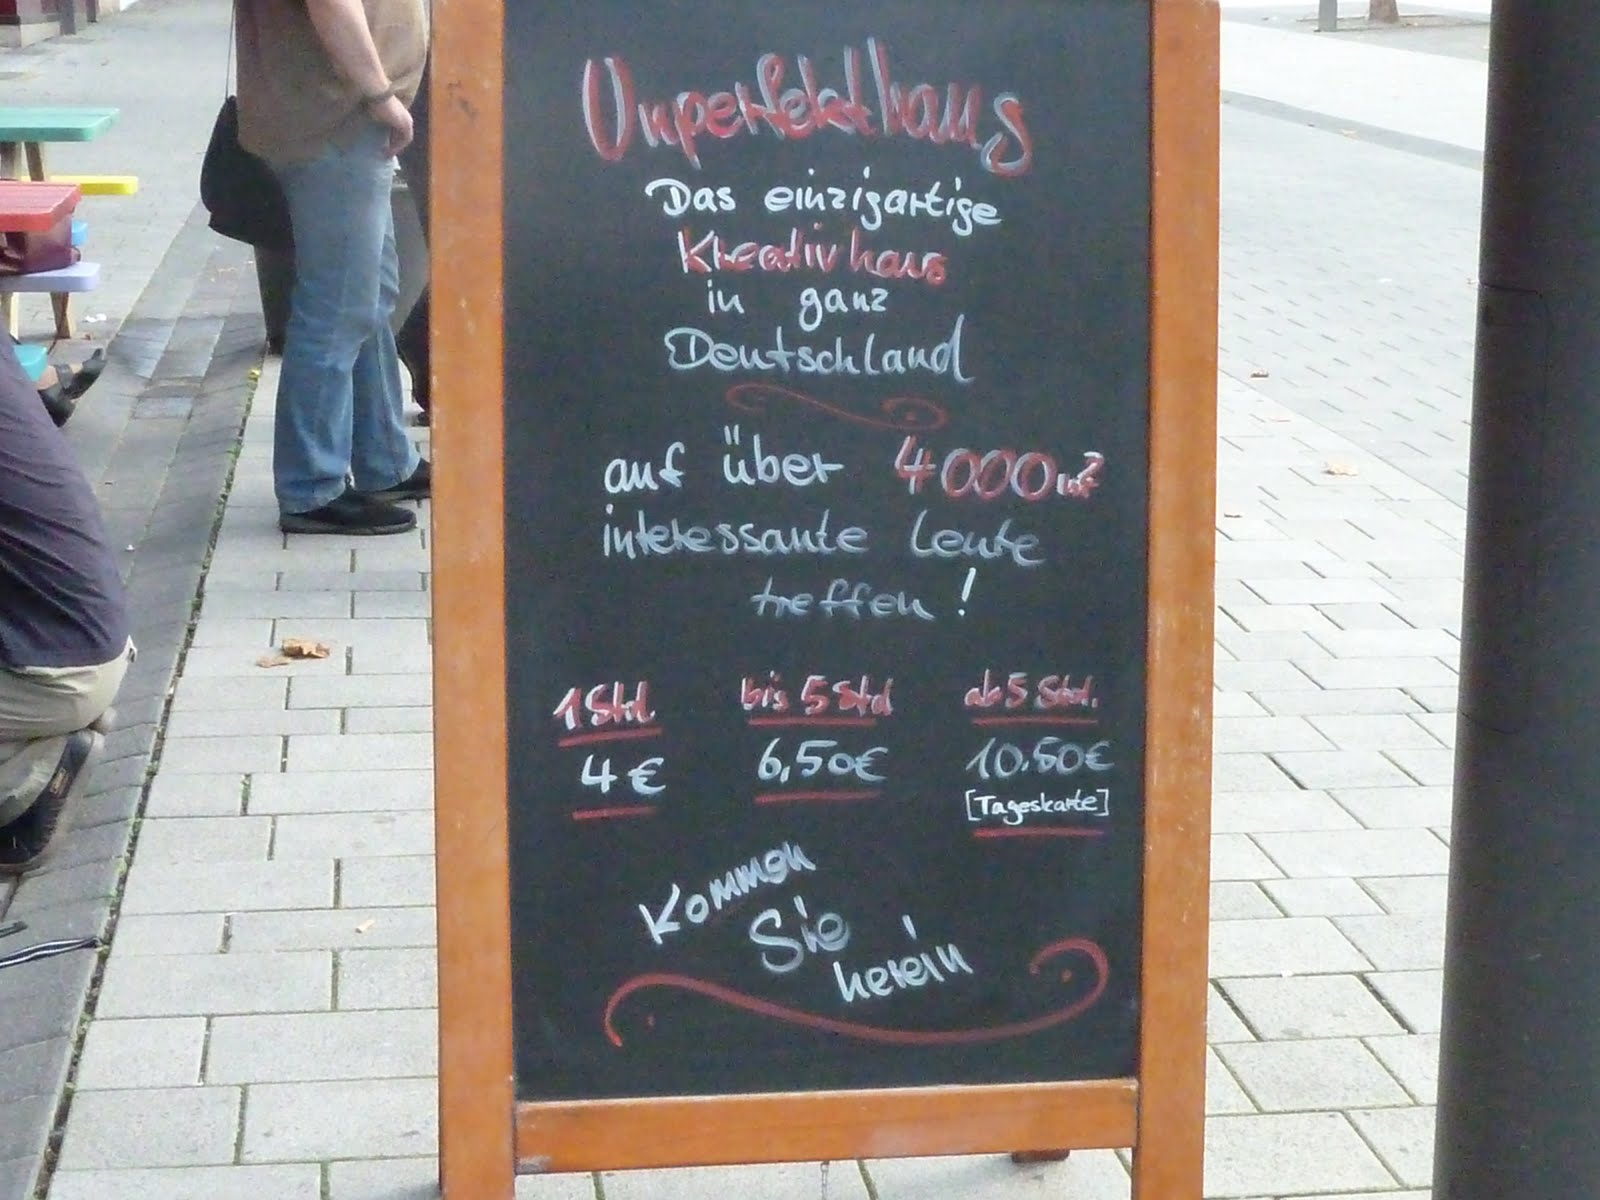 Unperfekthaus
Das einzigartige
Kreativhaus
in ganz
Deutschland
auf über 4000m²
interessante Leute
treffen!
1 Std bis 5 Std ab 5 Std.
4 € 6,50€ 10.50€
[Tageskarte]
Kommen
Sie
herein